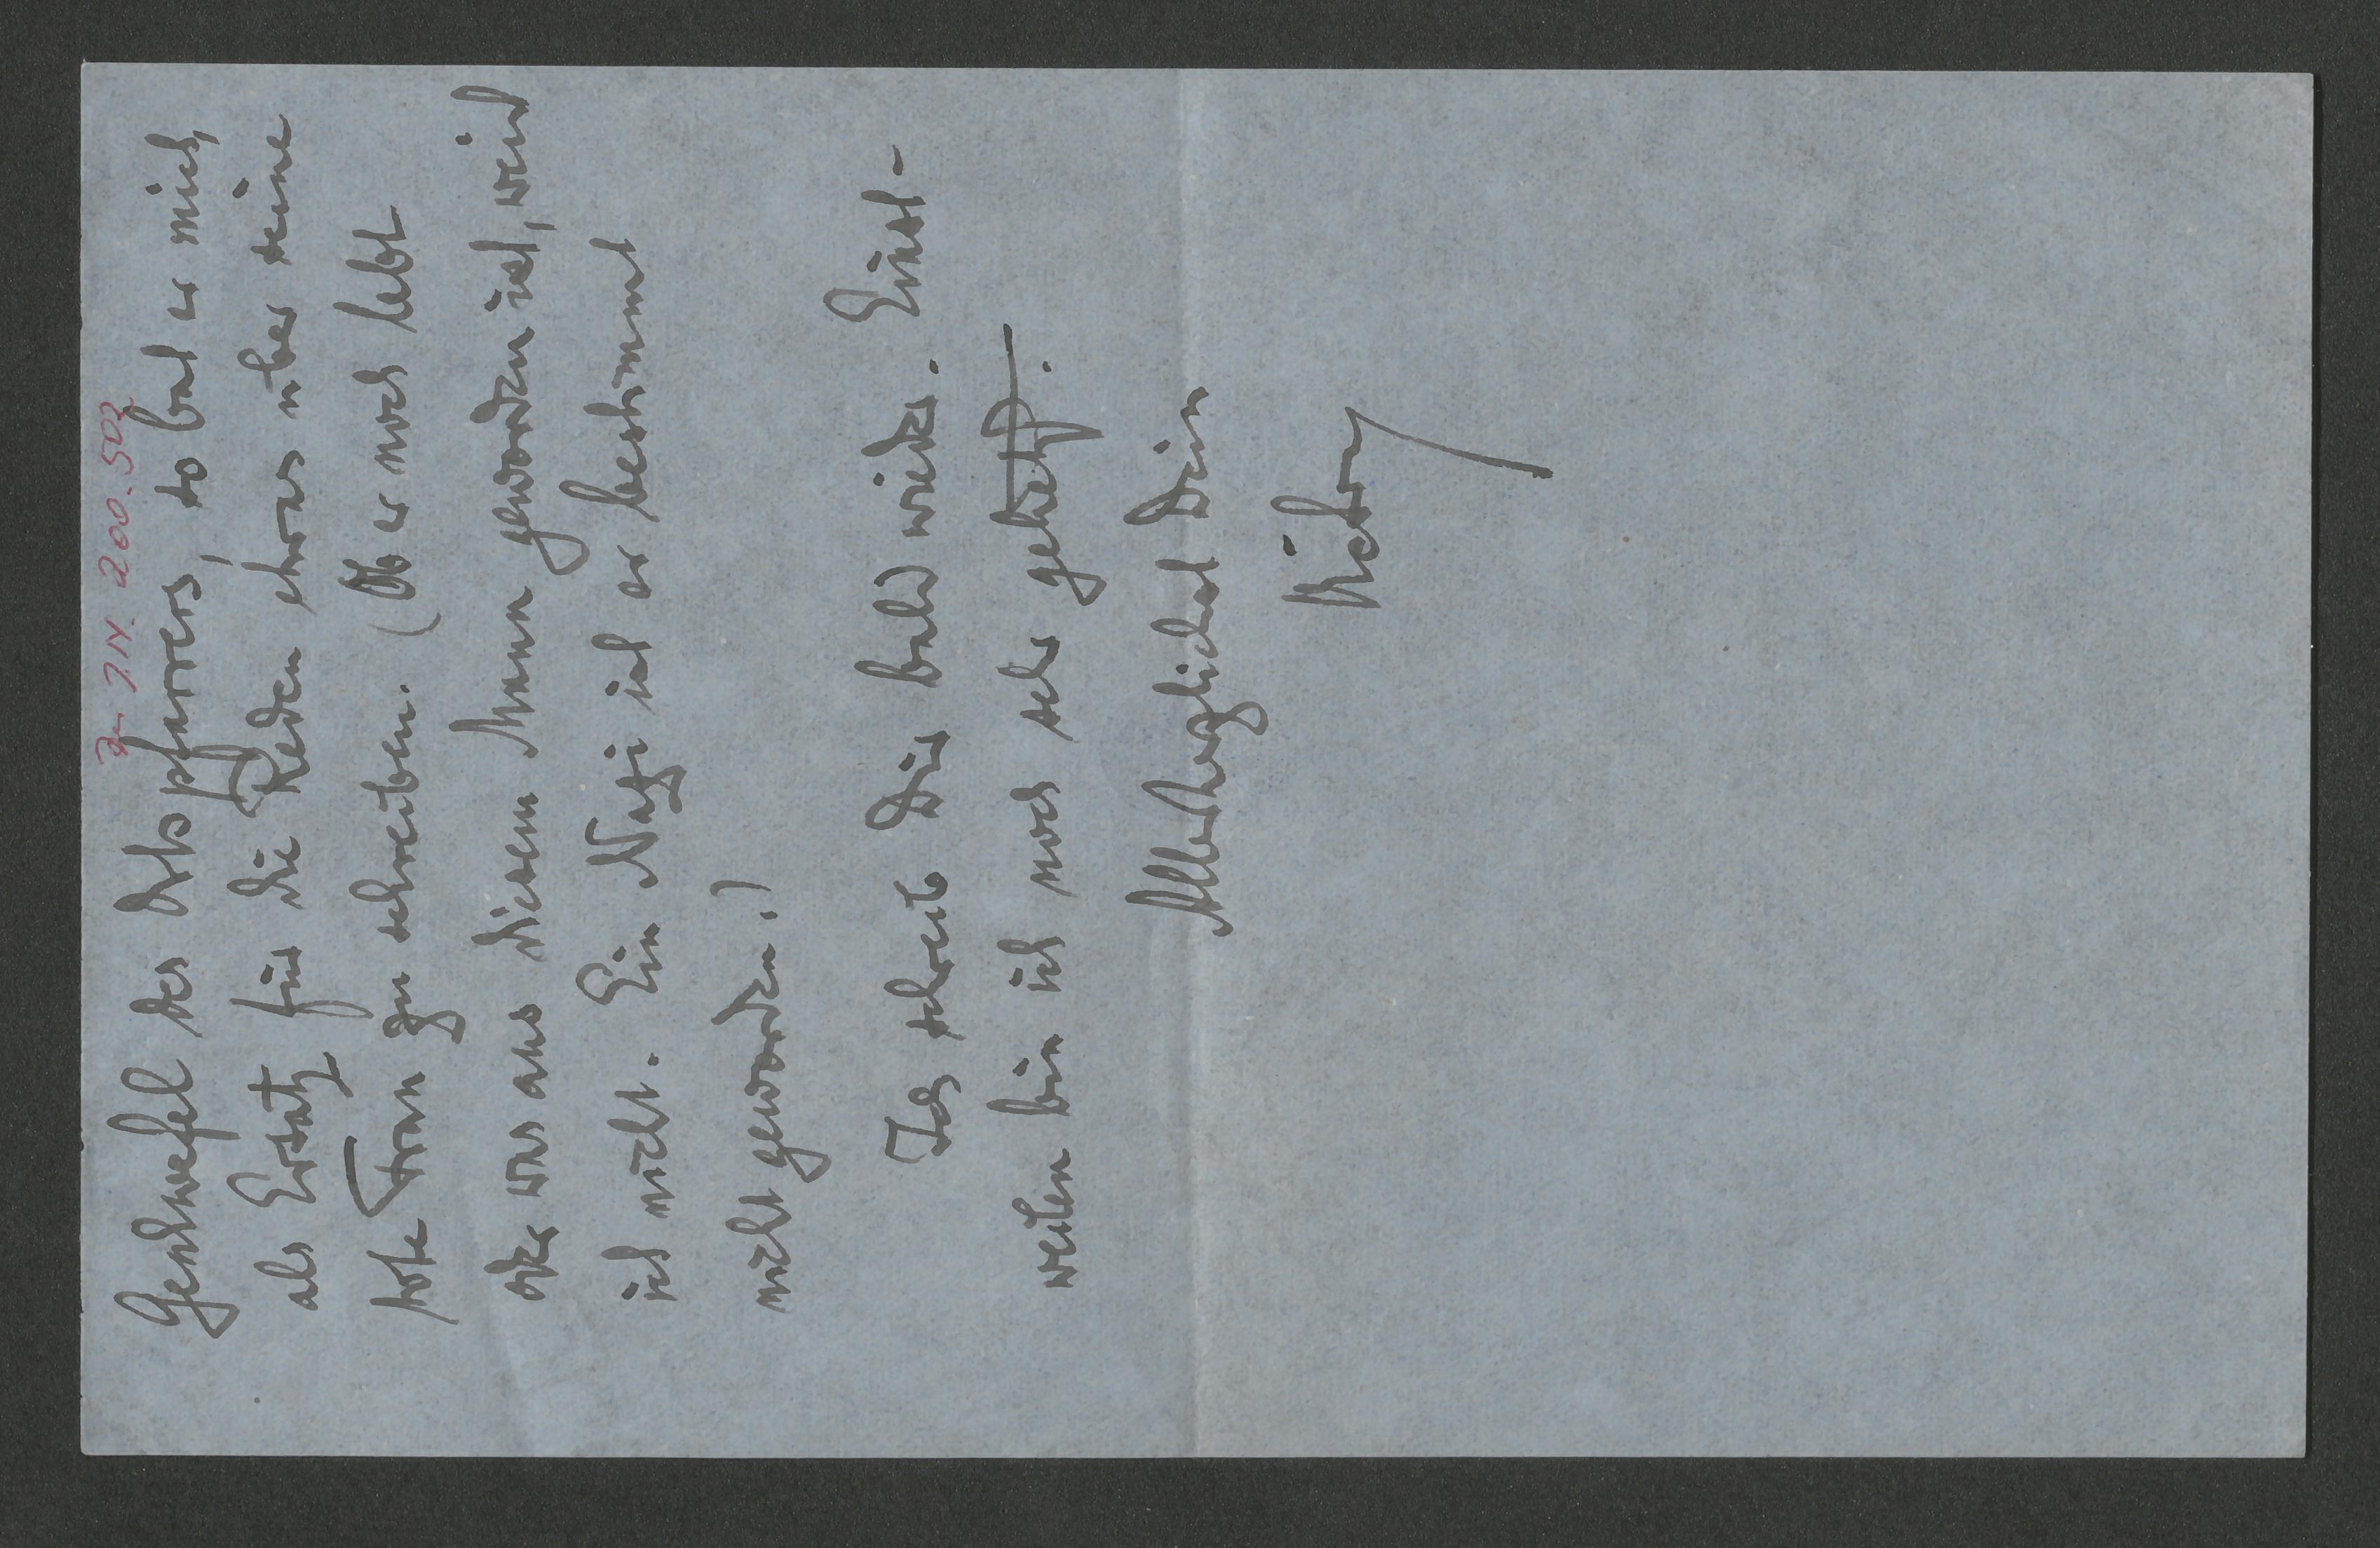 Zu I.N. 200.502
Geschwefel des Ortspfarrers, so bat er mich,
als Ersatz für die Reden etwas über seine
tote Frau zu schreiben. (Ob er noch lebt
oder was aus diesem Mann geworden ist, weiß
ich nicht. Ein Nazi ist er bestimmt
nicht geworden.)
Ich schreib Dir bald wieder. Einst-
weilen bin ich noch sehr gehetzt.
Allerherzlichst Dein